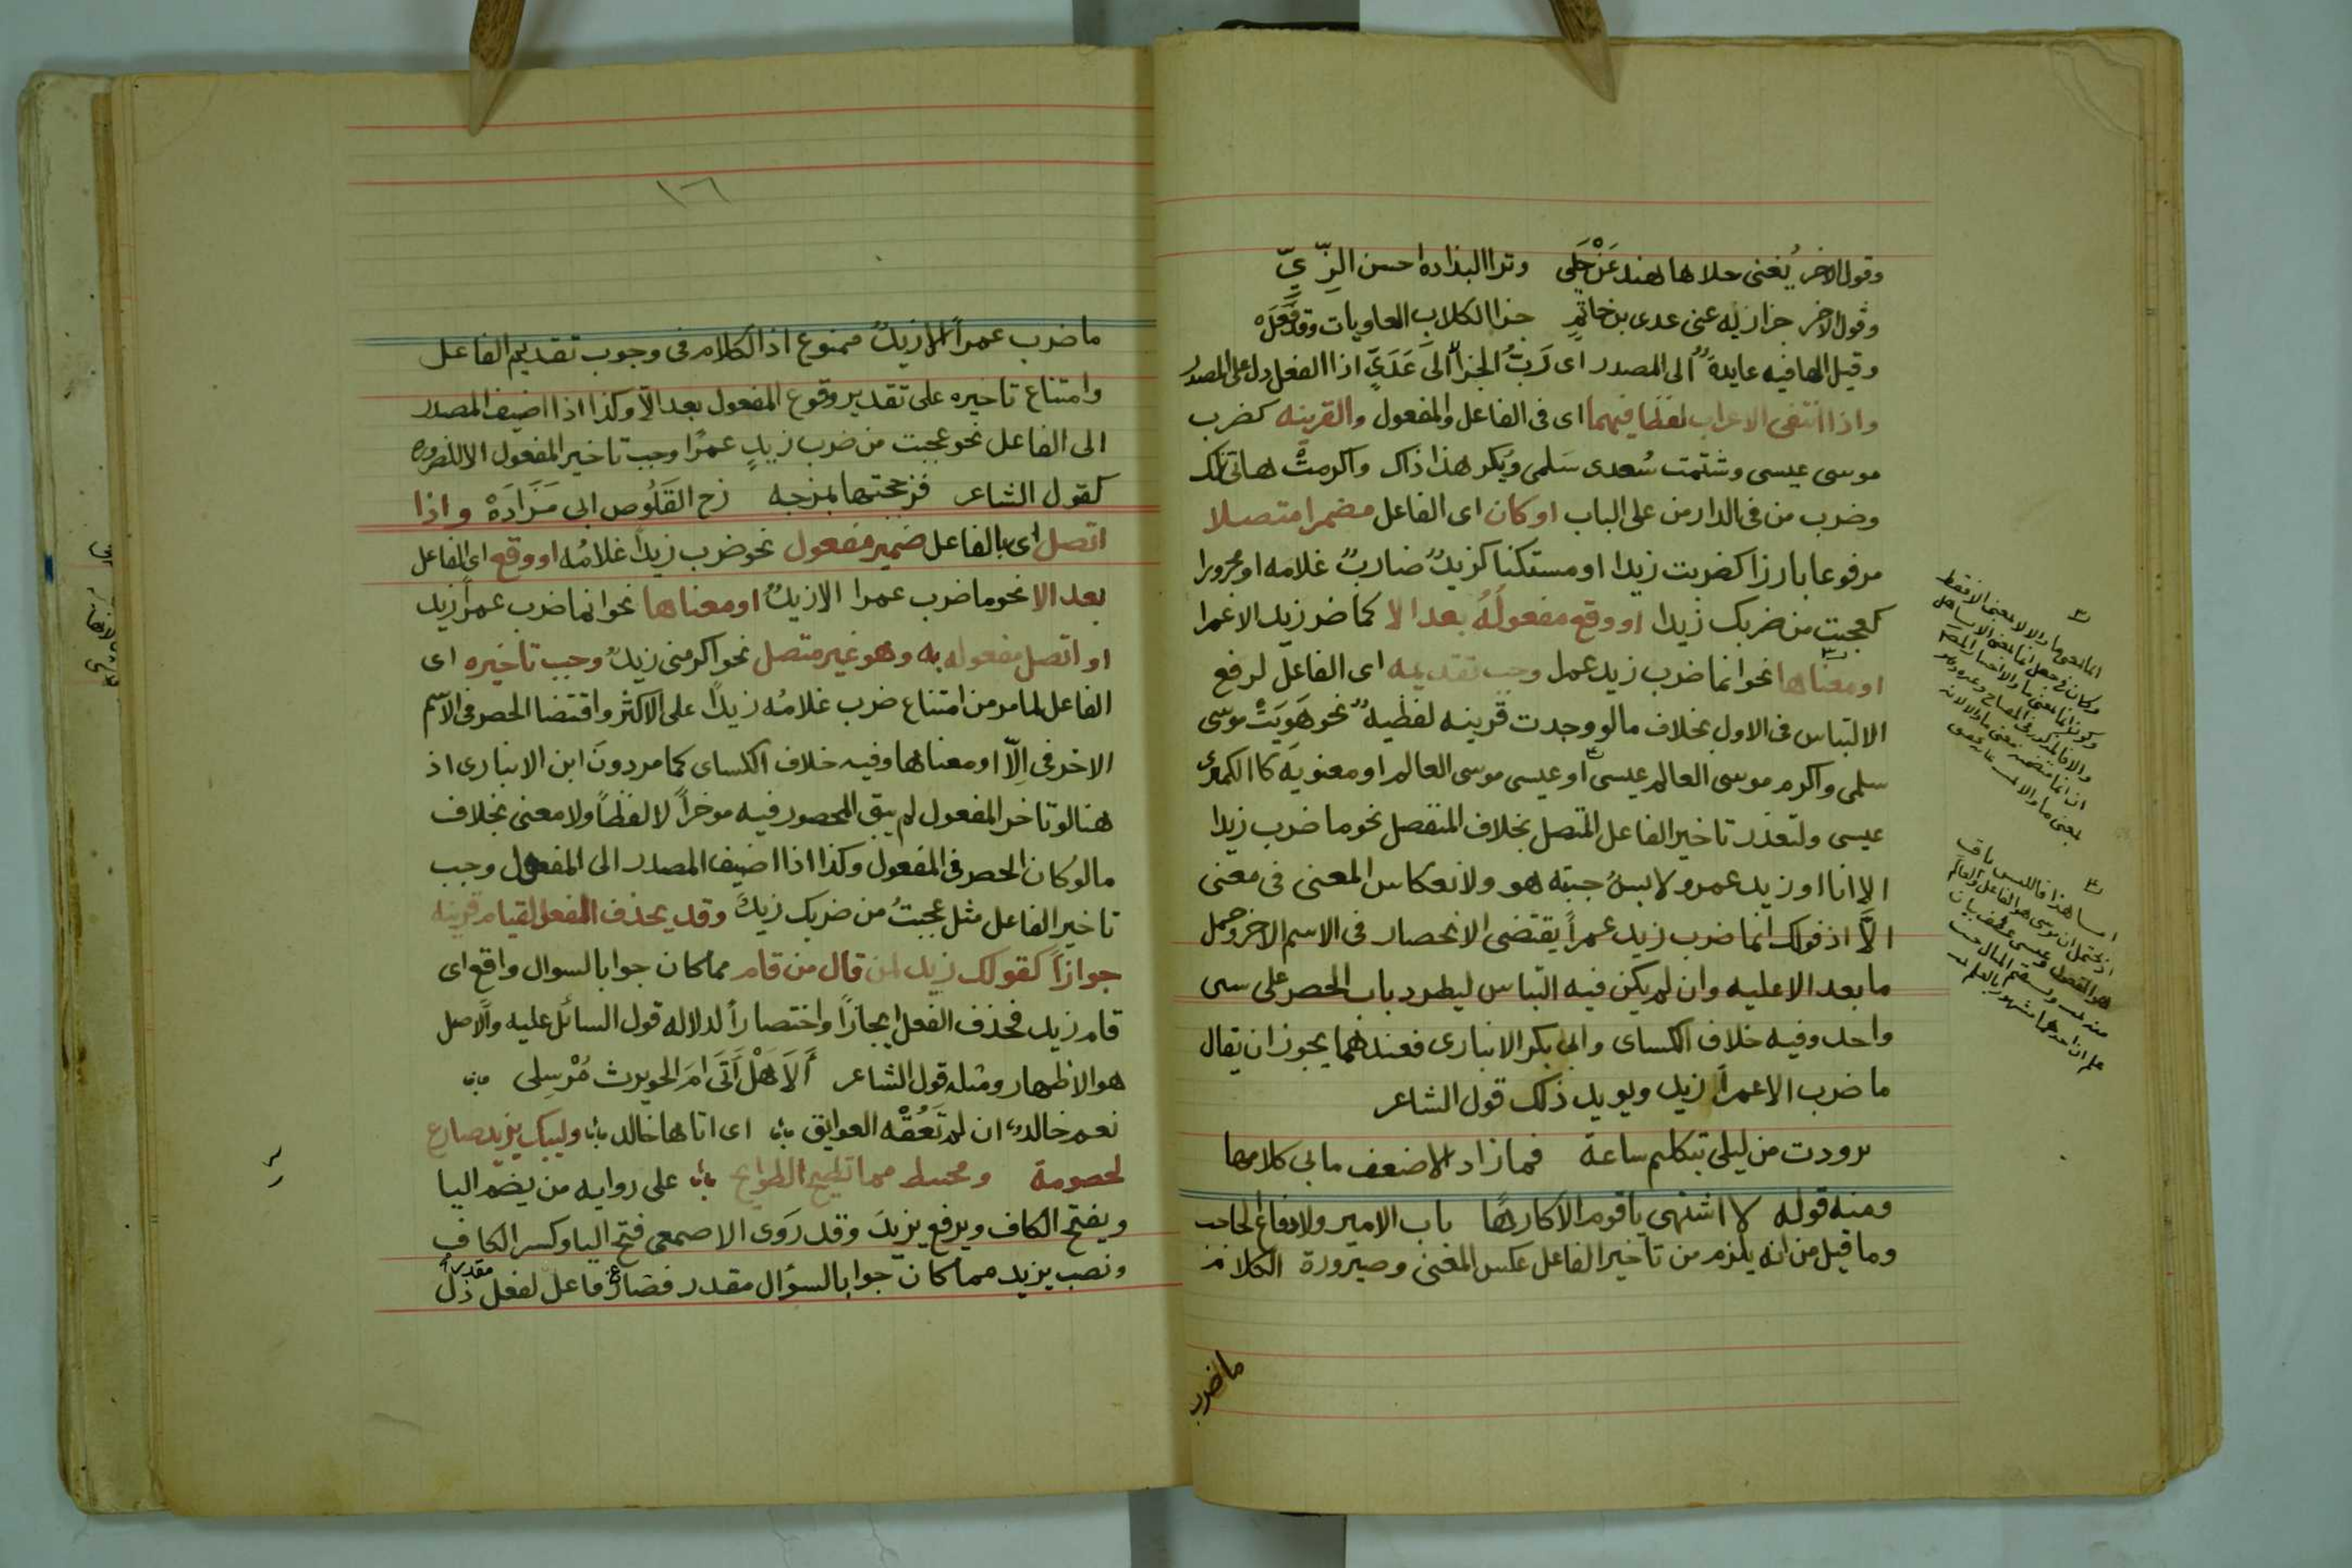 وقول الاخر يُغنى حلاها هند عَنْ حَلي وترا البذاده احسن الزِّيّ
وقول الاخر جزا ربه عنى عدى بن حاتمٍ جزا الكلاب العاويات وقد فَعَلَ
وقيل الها فيه عايدةٌ الى المصدر اى رَبُّ الجزا الى عَدَيٍّ اذا الفعل دل على المصدر
واذا انتفى الاعراب لفظا فيهما اى فى الفاعل والمفعول والقرينه كضرب
موسى عيسى وشتمت سُعدى سَلمى ويُكر هذا ذاك واكرمتْ هاتى تلك
وضرب من فى الدار من على الباب او كان اى الفاعل مضمرا متصلا
مرفوعا بارزا كضربت زيدا او مستكنا كزيدٌ ضاربٌ غلامه او مجرورا
كعجبت من ضربك زيدا او وقع مفعولُهُ بعد الا كما ضرب زيد الا عمرا
او معناها نحو انما ضرب زيد عمرا وجب تقديمه اى الفاعل لرفع
الالتباس فى الاول بخلاف ما لو وجدت قرينه لفظيهٌ نحو هَوَيَتْ موسى
سلمى واكرم موسى العالم عيسى او عيسى موسى العالم او معنويه كاكل الكمثرى
عيسى ولتعذر تاخير الفاعل المتصل بخلاف المنفصل نحو ما ضرب زيدا
الا انا او زيد عمرو لا بسُ جبته هو ولانعكاس المعنى فى معنى
الاَّ اذ قولك انما ضرب زيد عمراً يقتضى الانحصار فى الاسم الاخر وحمل
ما بعد الا عليه وان لم يكن فيه التباس ليطرد باب الحصر على سى
واحد وفيه خلاف الكساى وابى بكر الانبارى فعندهما يجوز ان يقال
ما ضرب الا عمراً زيد ويويد ذلك قول الشاعر
تزودت من ليلى بتكليم ساعة فما زاد الا ضعف ما بى كلامها
ومنه قوله لا اشتهى يا قوم الا كارهًا باب الامير ولا دفاع الحاجب
وما قيل من انه يلزم من تاخير الفاعل عكس المعنى وصيرورة الكلام
ما ضرب
١٦
ما ضرب عمراً الا زيدٌ فممنوع اذ الكلام فى وجوب تقديم الفاعل
وامتناع تاخيره على تقدير وقوع المفعول بعد الاّ وكذا اذا اضيف المصدر
الى الفاعل نحو عجبت من ضرب زيدٍ عمرًا وجب تاخير المفعول الا للضروره
كقول الشاعر فزججتها بمزجه زج القَلُوص ابى مَزَادَهْ واذا
اتصل اى بالفاعل ضمير مفعول نحو ضرب زيداً غلامُه او وقع اى الفاعل
بعد الا نحو ما ضرب عمرا الا زيدٌ او معناها نحو انما ضرب عمراً زيد
او اتصل مفعوله به وهو غير متصل نحو اكرمنى زيدٌ وجب تاخيره اى
الفاعل لما مر من امتناع ضرب غلامُه زيداً على الاكثر واقتضا الحصر فى الاسم
الاخر فى الاّ او معناها وفيه خلاف الكساى كما مر دونَ ابن الانبارى اذ
هنا لو تاخر المفعول لم يبق المحصور فيه موخراً لا لفظاً ولا معنى بخلاف
ما لو كان الحصر فى المفعول وكذا اذا اضيف المصدر الى المفعول وجب
تاخير الفاعل مثل عجبتُ من ضربك زيدٌ وقد يحذف الفعل لقيام قرينه
جوازاً كقولك زيد لمن قال من قام مما كان جوابا لسوال واقع اى
قام زيد فحذف الفعل ايجازاً واختصاراً لدلاله قول السائل عليه والاصل
هو الاظهار ومثله قول الشاعر أَلَا هَلْ أَتَى امَ الحويرث مُرْسِلى
نعم خالد ان لم تَعُقْه العوايق اى اتاها خالد وليبك يزيد ضارع
لخصومة ومختبط مما تطيح الطوايح على روايه من يضم اليا
ويفتح الكاف ويرفع يزيدَ وقد رَوَى الاصمعى فتح اليا وكسر الكاف
ونصب يزيد مما كان جوابا لسؤال مقدر فضارعٌ فاعل لفعل مقدر دل